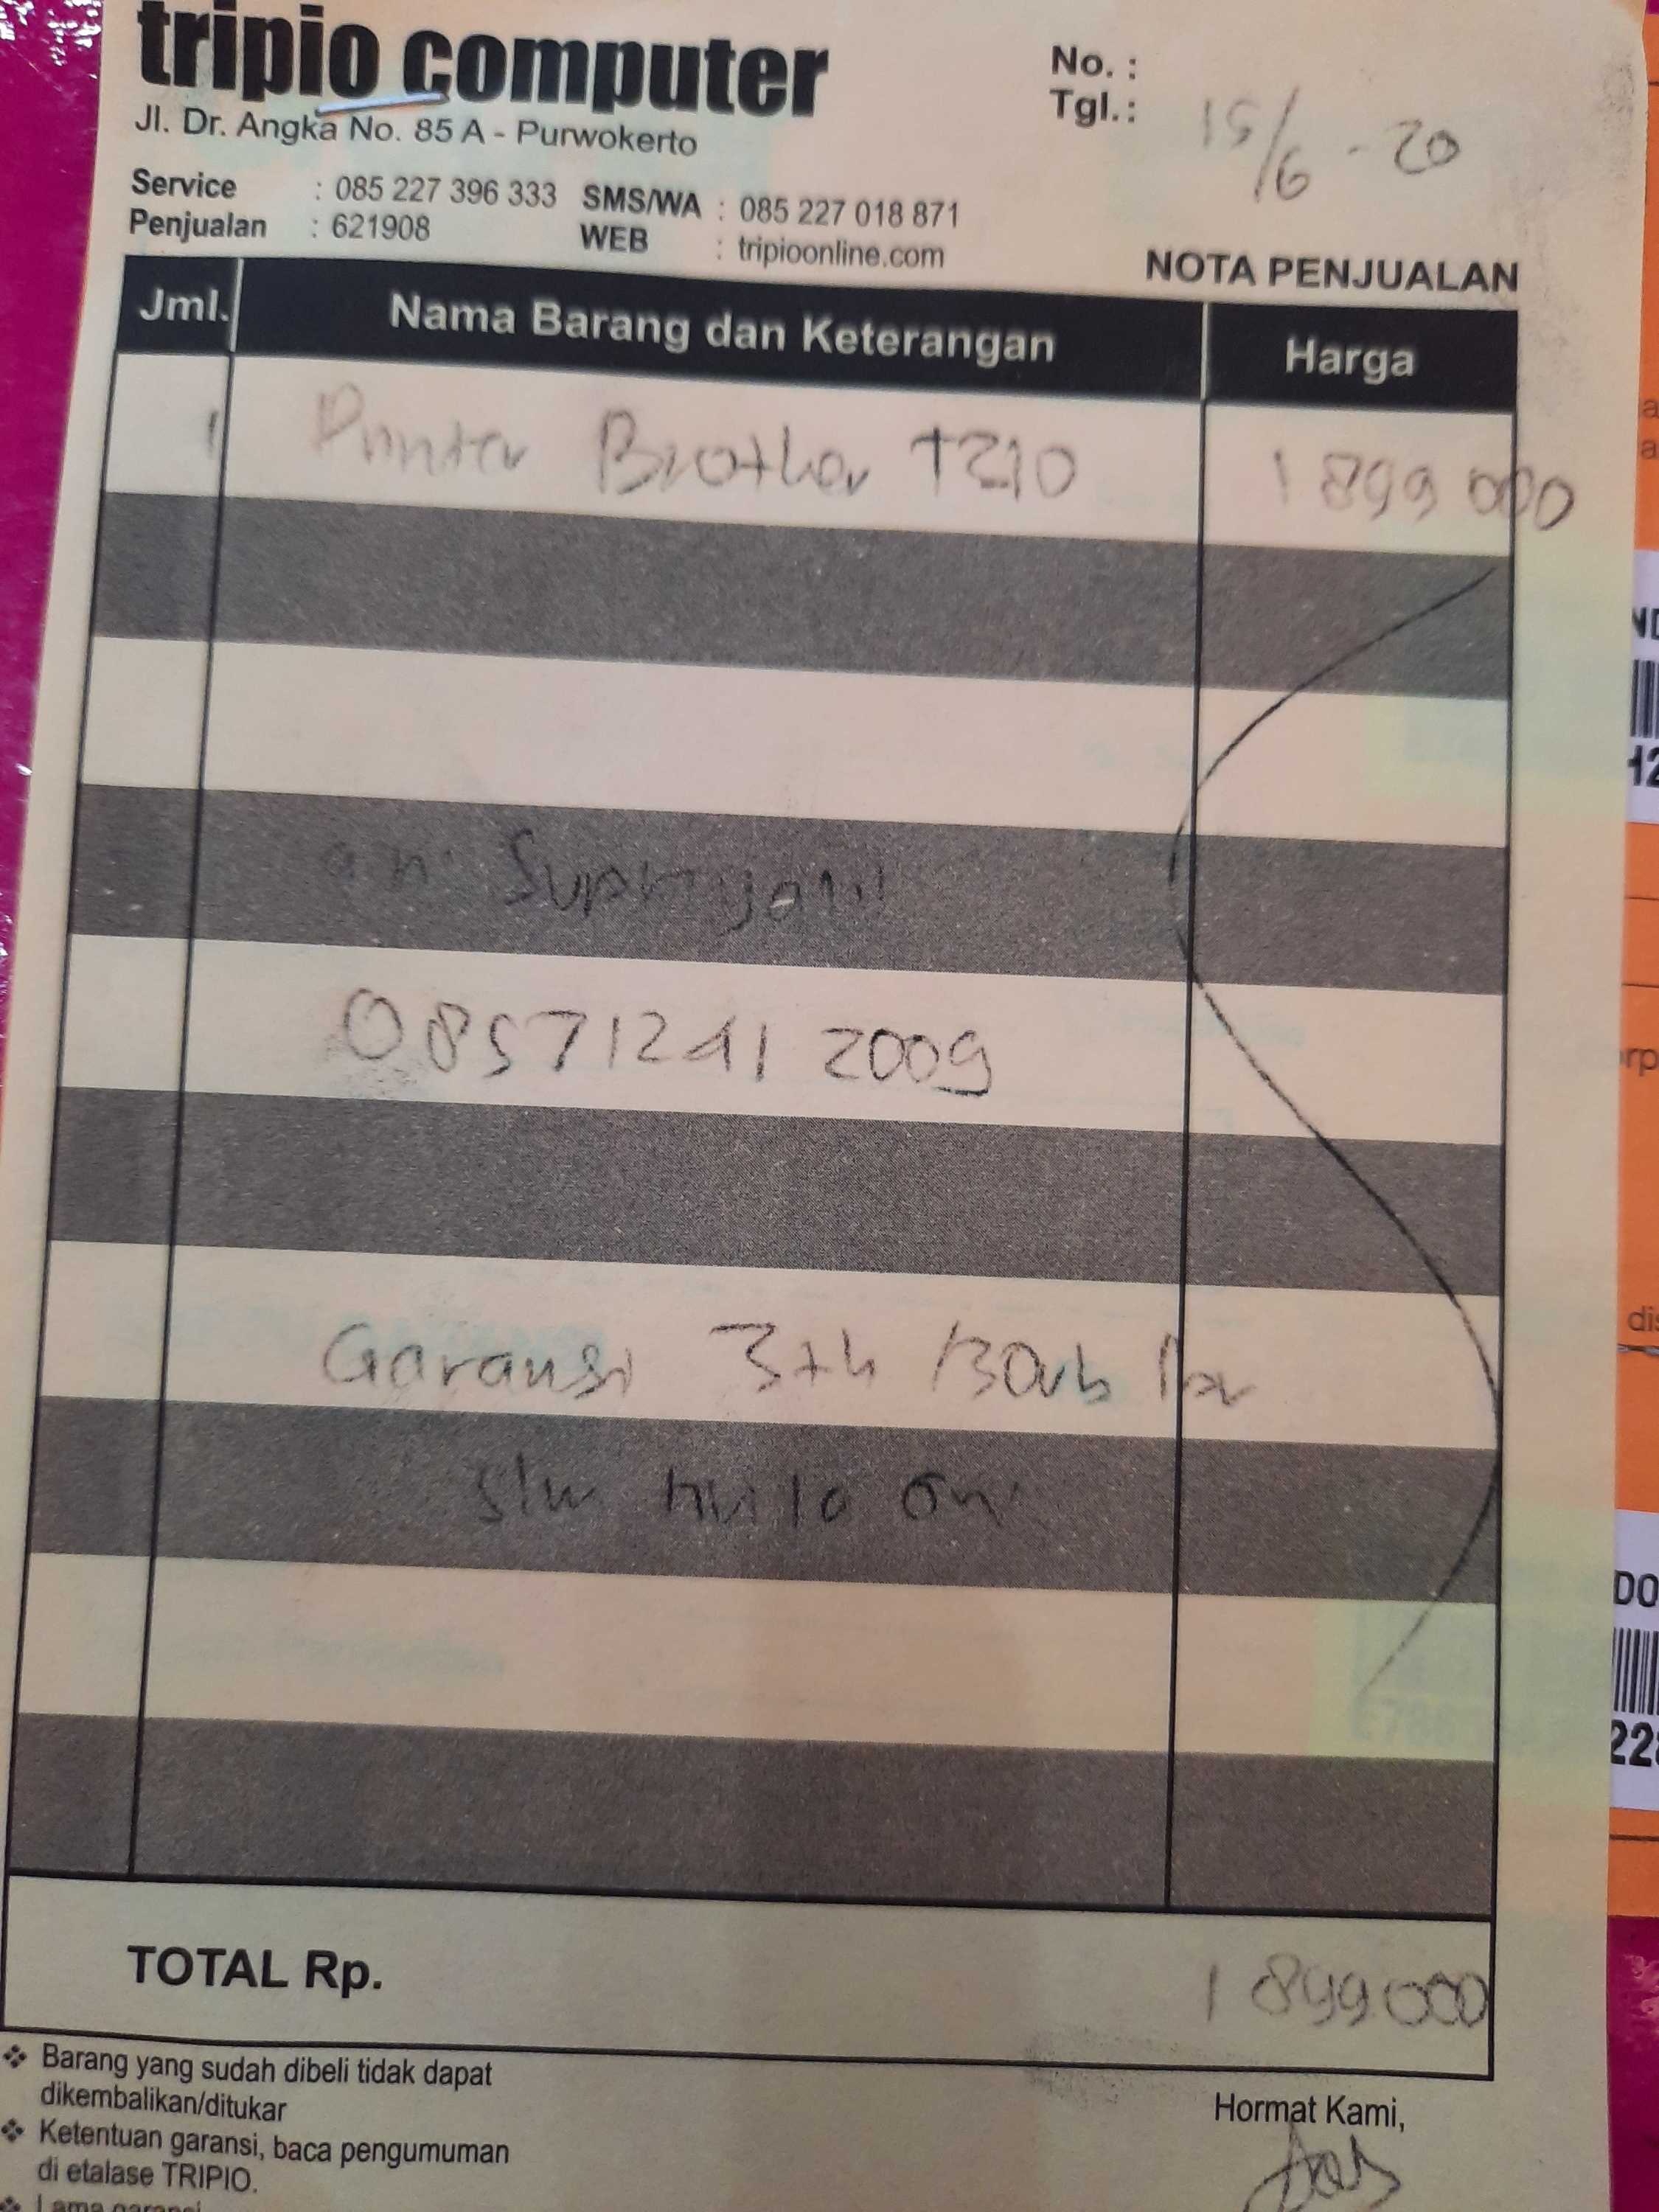 tripio computer
Jl. Dr. Angka No. 85 A - Purwokerto
Service : 085 227 396 333 SMS/WA : 085 227 018 871
Penjualan : 621908 WEB : tripioonline.com
No. :
Tgl. : 15/6 - 20
NOTA PENJUALAN
Jml. Nama Barang dan Keterangan Harga
1 Printer Brother T210 1 899 000
an. Supriyati
085712412009
Garansi 3th /30rb
TOTAL Rp. 1 899 000
❖ Barang yang sudah dibeli tidak dapat
dikembalikan/ditukar
❖ Ketentuan garansi, baca pengumuman
di etalase TRIPIO.
❖ Lama garansi
Hormat Kami,